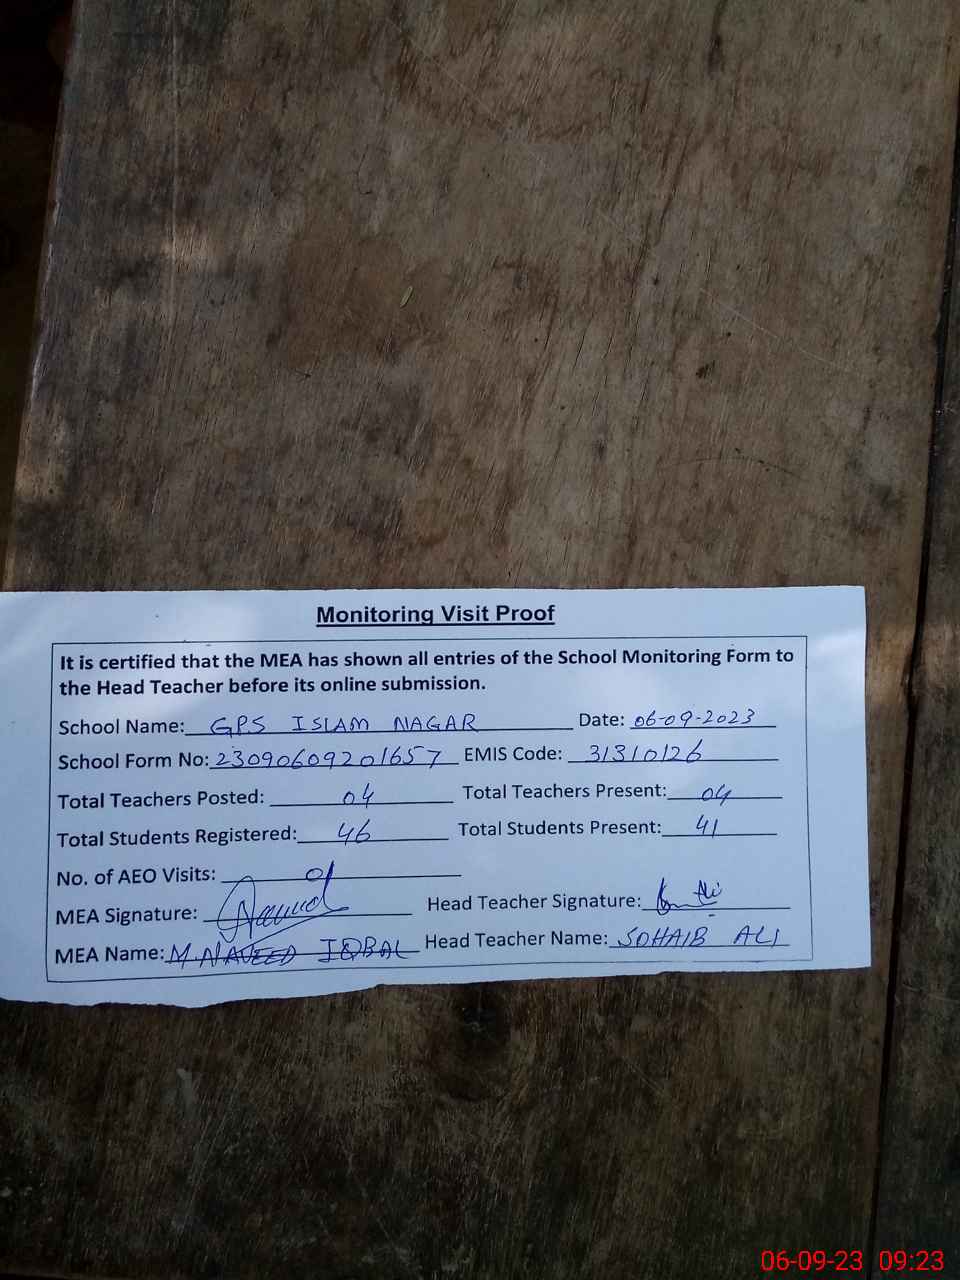 Monitoring Visit Proof
It is certified that the MEA has shown all entries of the School Monitoring Form to
the Head Teacher before its online submission.
School Name: GPS ISLAM NAGAR Date: 06-09-2023
School Form No: 23090609201657 EMIS Code: 31310126
Total Teachers Posted: 04 Total Teachers Present: 04
Total Students Registered: 46 Total Students Present: 41
No. of AEO Visits: 01
MEA Signature: Head Teacher Signature:
MEA Name: M. NAVEED IQBAL Head Teacher Name: SOHAIB ALI
06-09-23 09:23